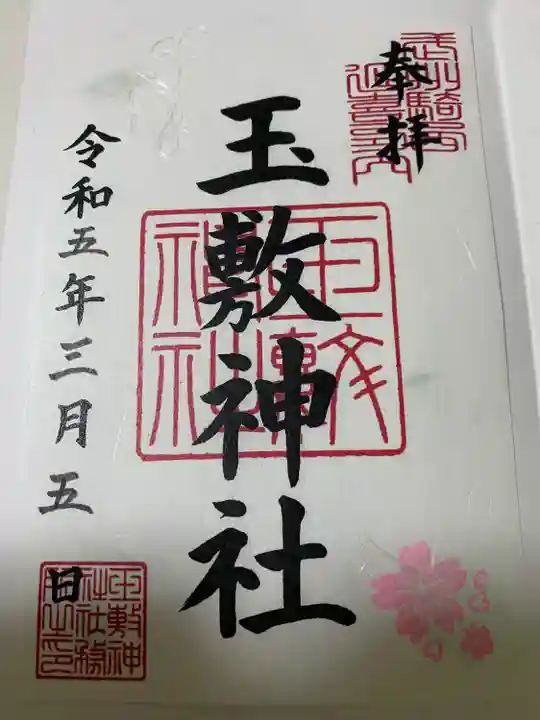 奉拝
玉敷神社
令和五年三月五日
玉敷神社